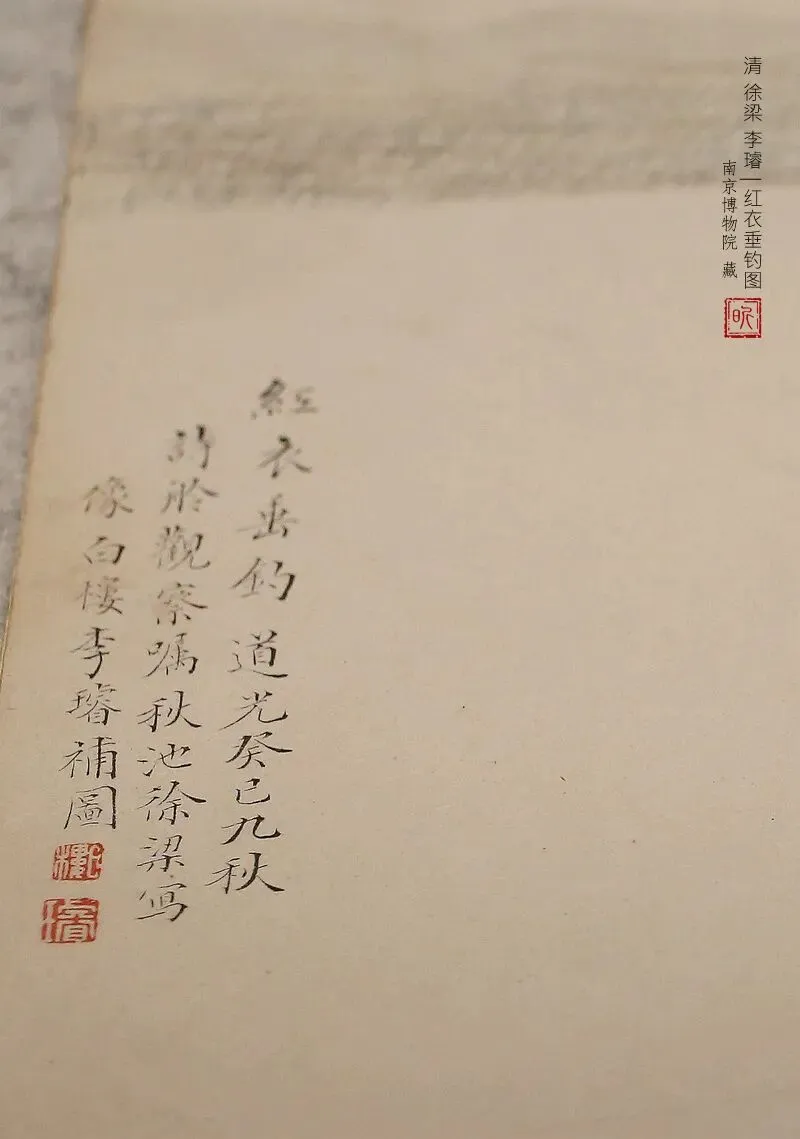 清 徐梁 李璿—红衣垂钓图
南京博物院 藏
紅衣垂釣 道光癸巳九秋
舲觀察嘱秋池徐梁写
像白樓李璿補圖